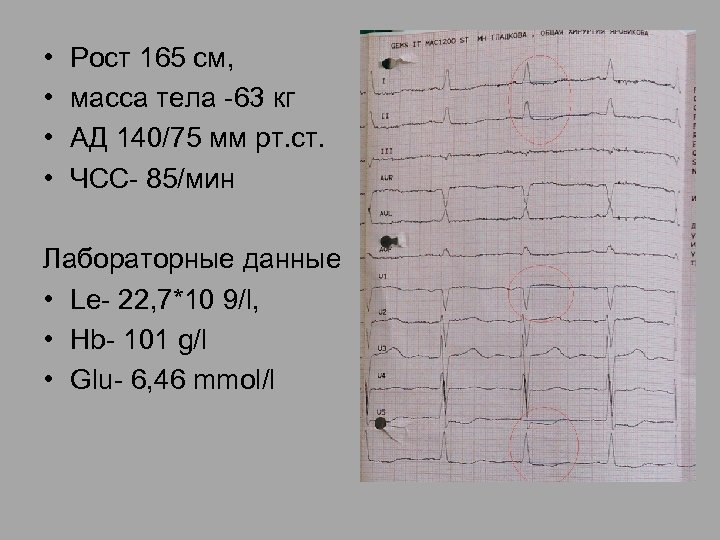 • Рост 165 см,
• масса тела -63 кг
• АД 140/75 мм рт.ст.
• ЧСС- 85/мин
Лабораторные данные
• Le- 22,7*10 9/l,
• Hb- 101 g/l
• Glu- 6,46 mmol/l
GEMS IT MAC1200 ST МН ГЛАДКОВА , ОБЩАЯ ХИРУРГИЯ ЯРОВИКОВА
I
II
III
AUR
AUL
AUF
U1
U2
U3
U4
U5